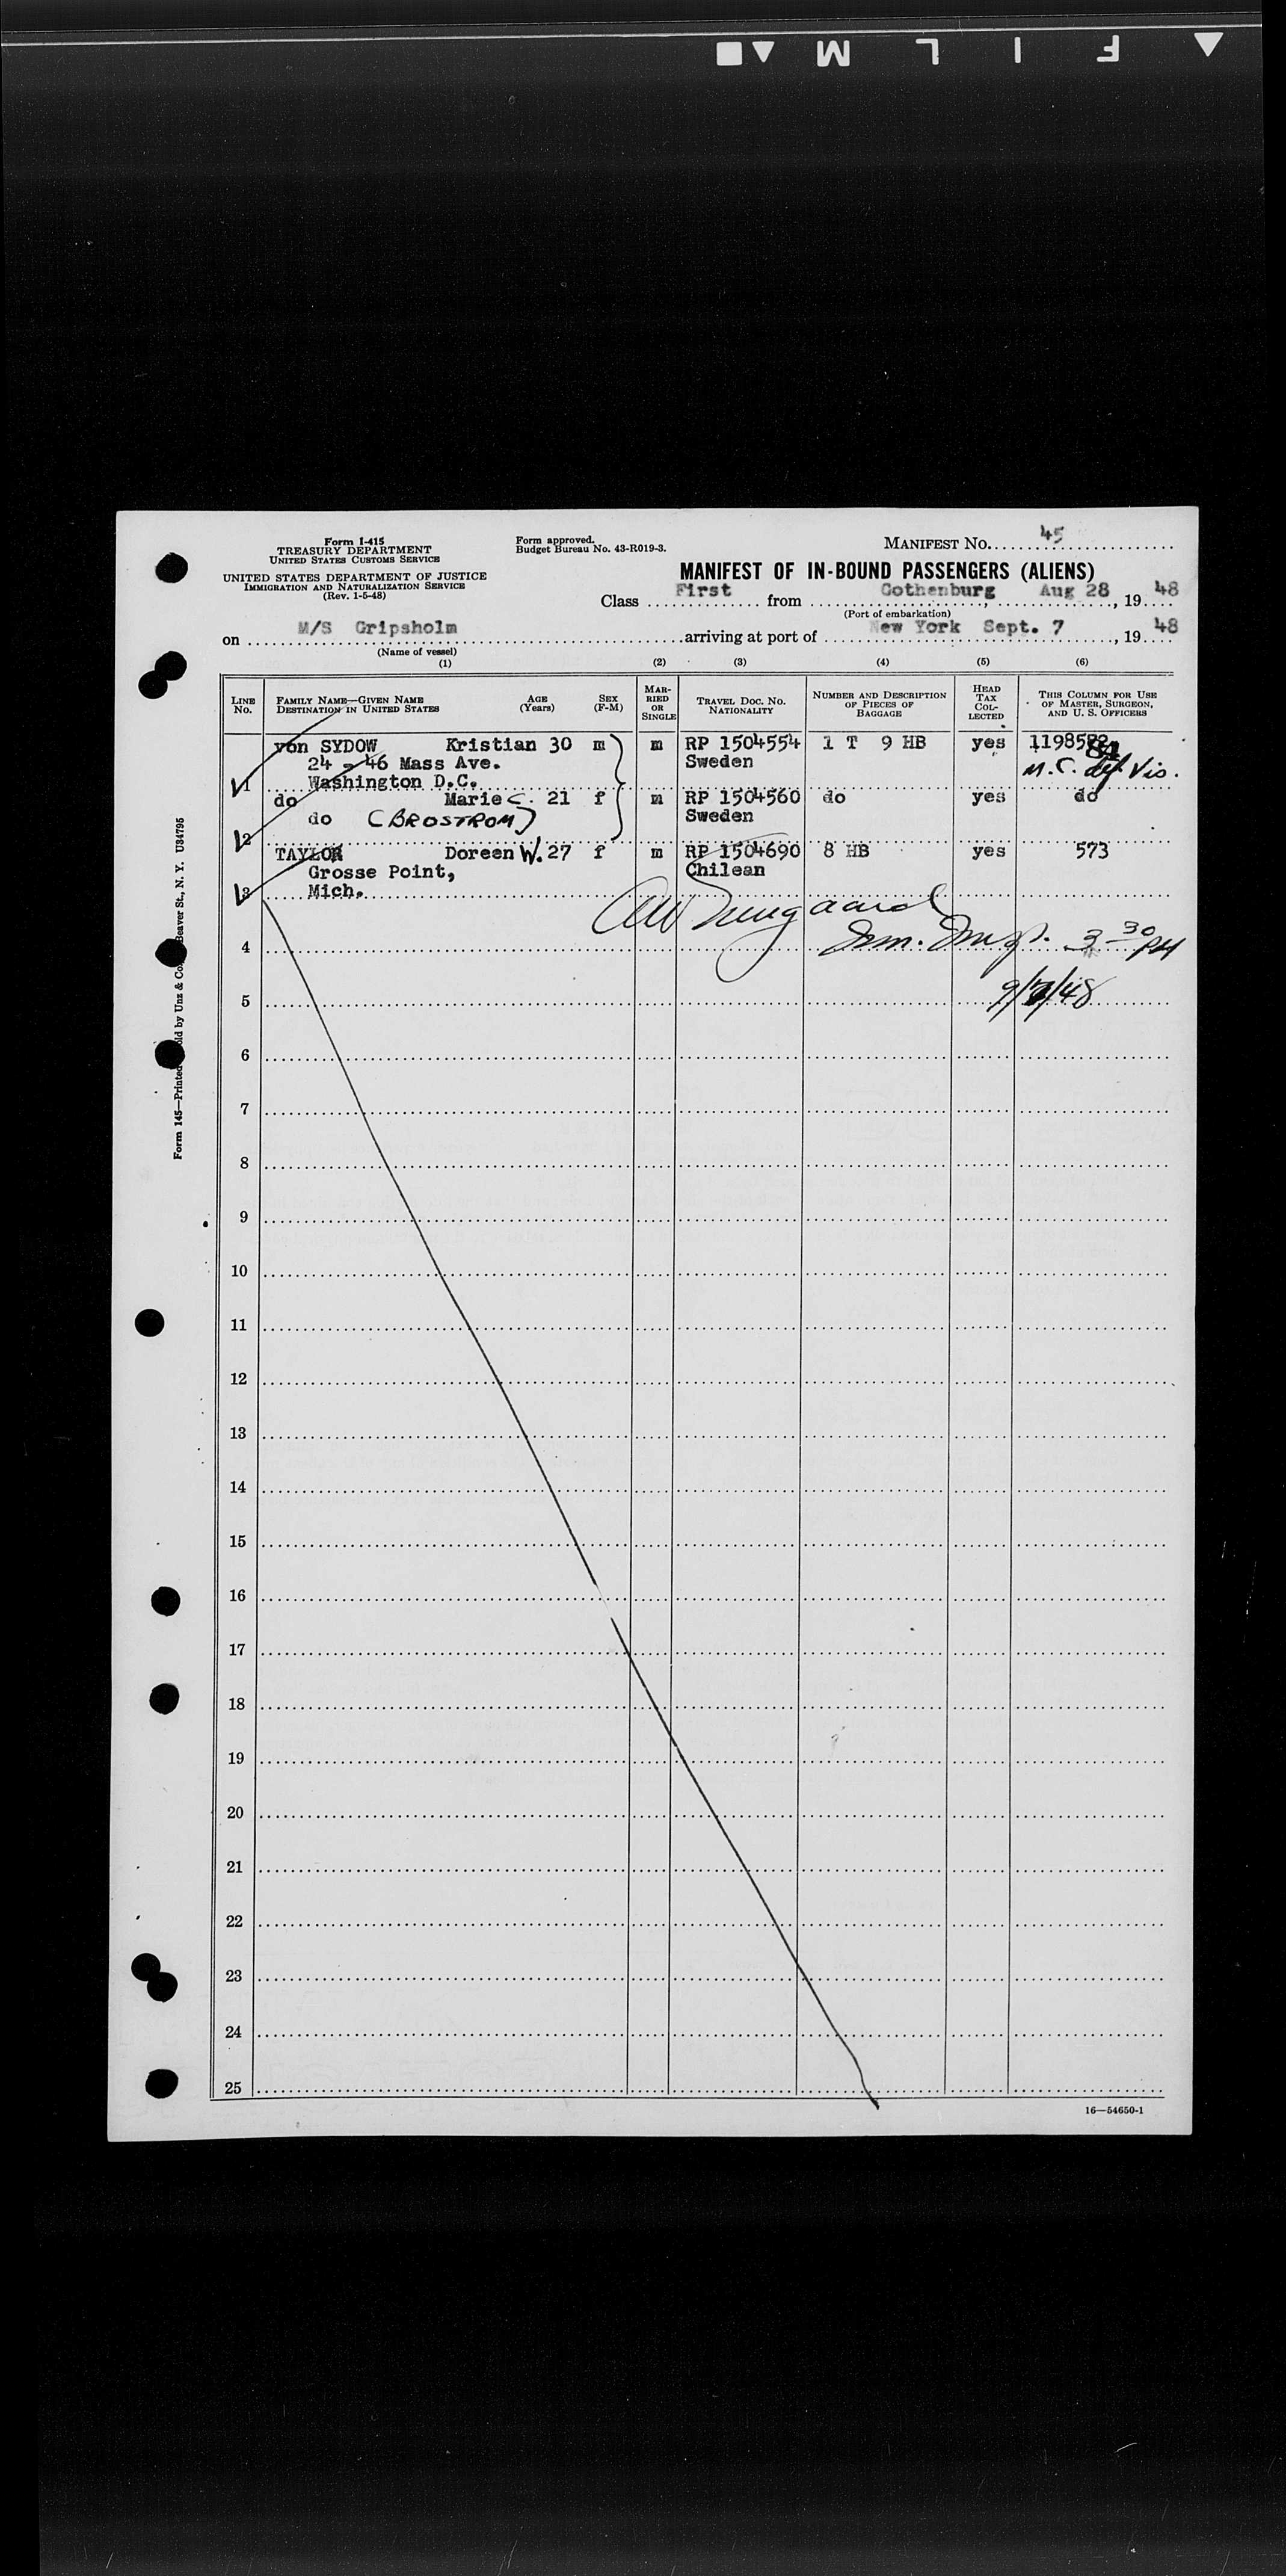 F I L M
Form I-415
TREASURY DEPARTMENT
UNITED STATES CUSTOMS SERVICE
UNITED STATES DEPARTMENT OF JUSTICE
IMMIGRATION AND NATURALIZATION SERVICE
(Rev. 1-5-48)
Form approved.
Budget Bureau No. 43-R019-3.
MANIFEST No. 45
MANIFEST OF IN-BOUND PASSENGERS (ALIENS)
Class First from Gothenburg, Aug 28, 19 48
(Port of embarkation)
on M/S Gripsholm arriving at port of New York Sept. 7, 19 48
(Name of vessel)
(1) (2) (3) (4) (5) (6)
LINE No. FAMILY NAME—GIVEN NAME DESTINATION IN UNITED STATES AGE (Years) SEX (F-M) MARRIED OR SINGLE TRAVEL DOC. NO. NATIONALITY NUMBER AND DESCRIPTION OF PIECES OF BAGGAGE HEAD TAX COLLECTED THIS COLUMN FOR USE OF MASTER, SURGEON, AND U. S. OFFICERS
von SYDOW Kristian 30 m m RP 1504554 1 T 9 HB yes
24 - 46 Mass Ave. Sweden
1 Washington D.C.
do Marie C. 21 f m RP 1504560 do yes do
do (BROSTROM) Sweden
2
TAYLOR Doreen W. 27 f m RP 1504690 8 HB yes 573
Grosse Point, Chilean
3 Mich.
4 Imm. Insp. 3 30 PM
5 9/7/48
6
7
8
9
10
11
12
13
14
15
16
17
18
19
20
21
22
23
24
25
16—54650-1
Form 145—Printed Sold by Unz & Co. Beaver St., N. Y. U34795